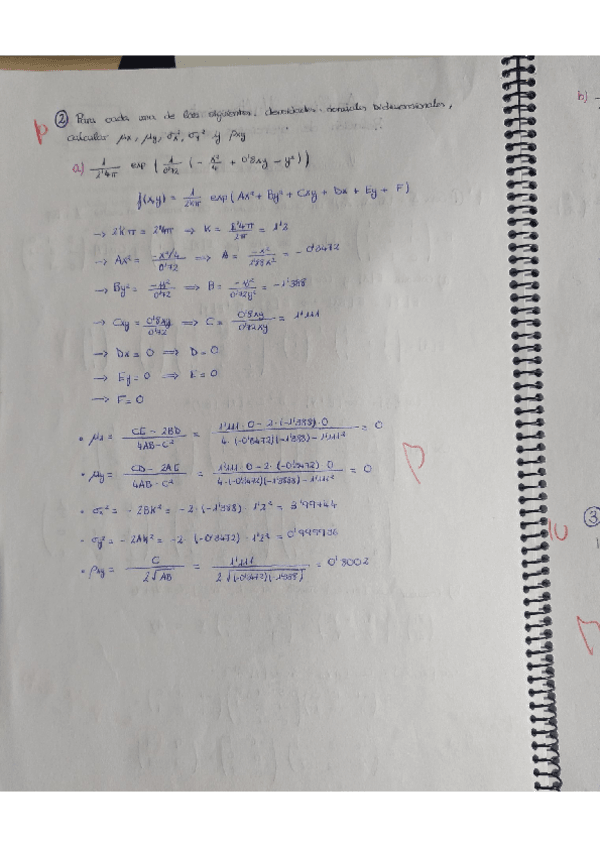 p ② Para cada una de las siguientes densidades normales bidimensionales,
calcular μx, μy, σx², σy² y ρxy
a) 1/2'4π exp(1/0'72 (-x²/4 + 0'8xy - y²))
f(x,y) = 1/2kπ exp(Ax² + By² + Cxy + Dx + Ey + F)
→ 2Kπ = 2'4π → K = 2'4π/2π = 1'2
→ Ax² = (-x²/4)/0'72 ⇒ A = -x²/2'88x² = -0'3472
→ By² = -y²/0'72 ⇒ B = -y²/0'72y² = -1'388
→ Cxy = 0'8xy/0'72 ⇒ C = 0'8xy/0'72xy = 1'111
→ Dx = 0 ⇒ D = 0
→ Ey = 0 ⇒ E = 0
→ F = 0
• μx = (CE - 2BD)/(4AB - C²) = (1'111·0 - 2·(-1'388)·0)/(4·(-0'3472)(-1'388) - 1'111²) = 0
• μy = (CD - 2AE)/(4AB - C²) = (1'111·0 - 2·(-0'3472)·0)/(4·(-0'3472)(-1'3888) - 1'111²) = 0
• σx² = -2BK² = -2·(-1'388)·1'2² = 3'99744
• σy² = -2AK² = -2·(-0'3472)·1'2² = 0'999936
• ρxy = C/2√AB = 1'111/2√(-0'3472)(-1'388) = 0'8002
b)
③